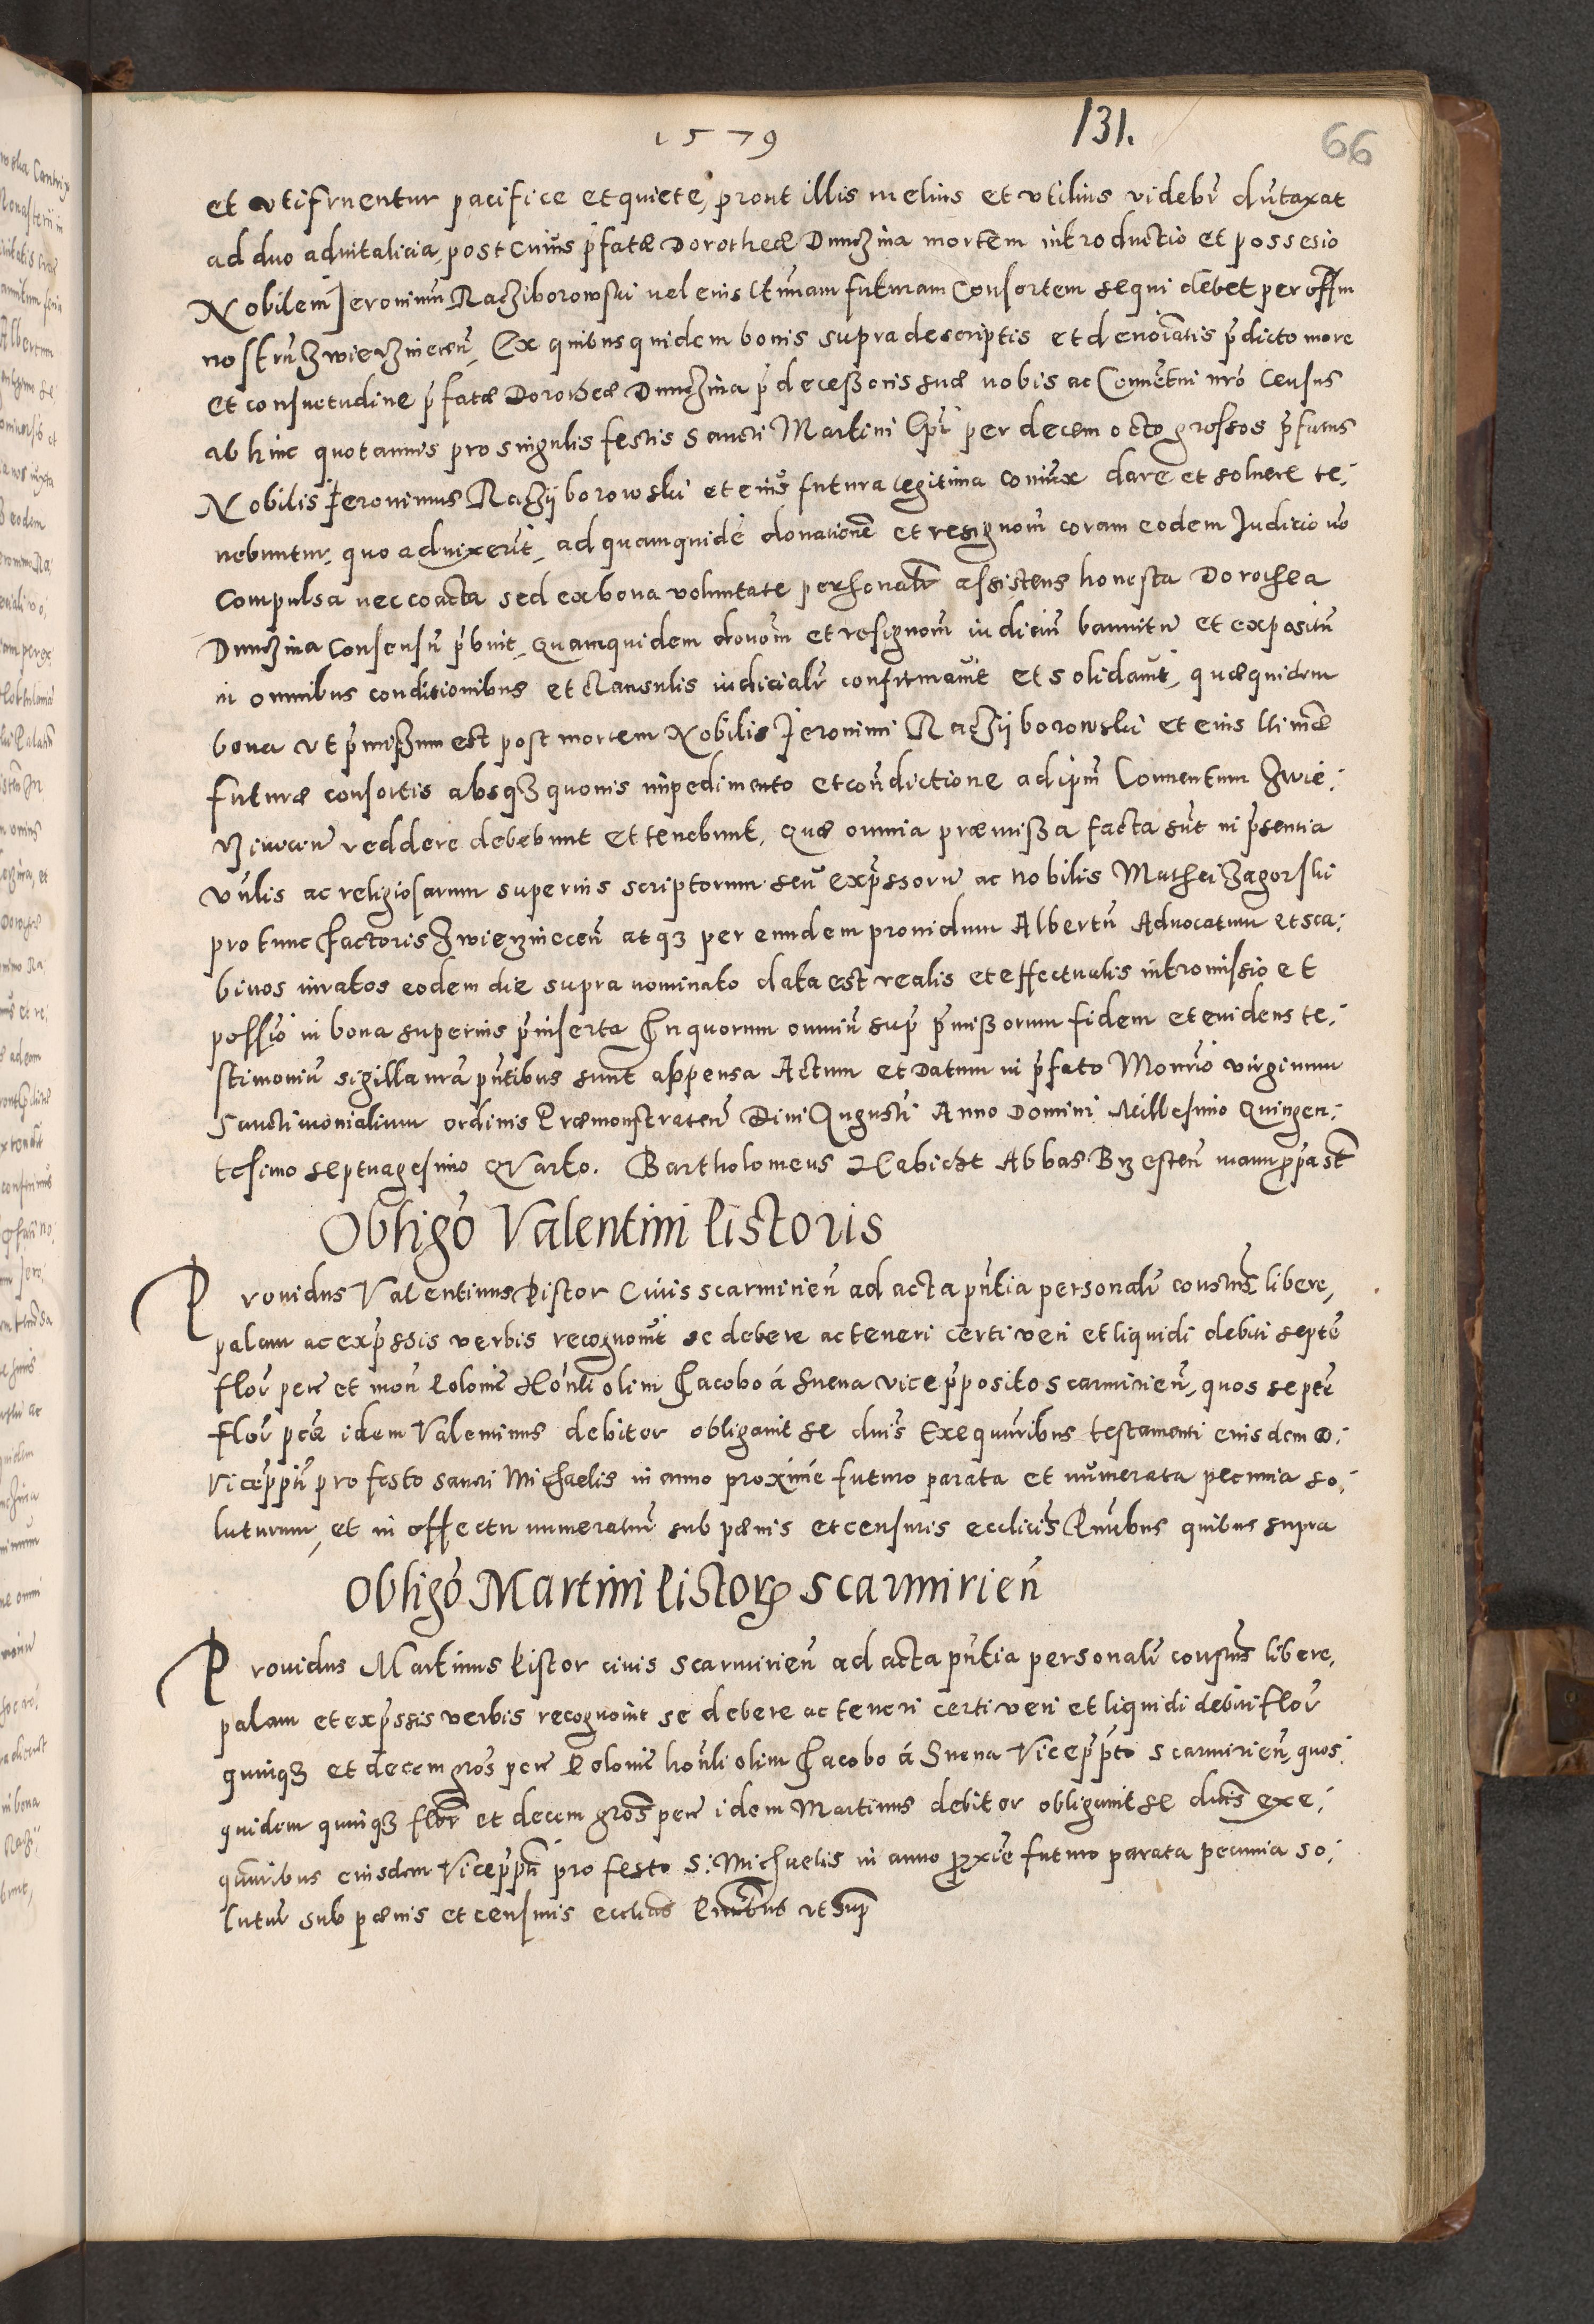 1579
131.
66
et utifruentur pacifice et quiete, prout illis melius et utilius videbr̃ dũtaxat
ad duo advitalicia, post cuius p̃fatæ Dorotheæ Dunczina mortem introductio et possesio
Nobilem Jeronimũ Racziborowski vel eius ltimam futuram Consortem sequi debet per offm
nostrũ Zwierziniecen̄, Ex quibusquidem bonis supra descriptis et denoiatis p̃dicto more
et consuetudine p̃fatæ Dorotheæ Dunczina p̃decessoris suæ nobis ac Convẽtui nr̃o Census
ab hinc quotannis pro singulis festis Sancti Martini Epi per decem octo grossos p̃fatus
Nobilis Jeronimus Raczijborowski et eius futura legitima coniux dare et solvere te:
nebuntur, quo advixerĩt, ad quamquidẽ donationẽ et resignom̃ coram eodem Judicio nõ
Compulsa nec coacta sed ex bona voluntate personalr̃ assistens honesta Dorothea
Dunczina Consensũ p̃buit, quamquidem donom̃ et resignom̃ iudiciũ bannitũ et expositũ
in omnibus conditionibus et clausulis iudicialr̃ confirmavit et solidavit, quæquidem
bona ut p̃missum est post mortem Nobilis Jeronimi Raczijborowski et eius ltimæ
futuræ consortis absq3 quovis impedimento et cõndictione ad ipm̃ Conventum Zwie:
rzinecen̄ reddere debebunt et tenebunt, Quæ omnia præmissa facta sũt in p̃sentia
vñlis ac religiosarum superius scriptorum seu exp̃ssorũ ac nobilis Mathei Zagorski
pro tunc factoris Zwierziniecen̄ atq3 per eundem providum Albertũ Advocatum et sca:
binos iuratos eodem die supra nominato data est realis et effectualis intromissio et
possio in bona superius p̃inserta In quorum omniũ sup̃ p̃missorum fidem et evidens te:
stimoniũ sigilla nr̃a pñtibus sunt appensa Actum et Datum in p̃fato Monrio virginum
Sanctimonialium ordinis Præmonstraten̄ Divi Augusti Anno Domini Millesimo Quingen:
tesimo septuagesimo Quarto. Bartholomeus Habicht Abbas Brzesten̄ manu p̃pa st
Obligo Valentini Pistoris
Providus Valentinus Pistor Civis scarmirien̄ ad acta pñtia personalr̃ constus̃ libere,
palam ac exp̃ssis verbis recognovit se debere ac teneri certi veri et liquidi debiti septẽ
flor̃ pecũ et mon̄ Polonic̃ Honli olim Jacobo á Suena vicep̃posito scarmirien̄, quos septẽ
flor̃ pcũ idem Valentinus debitor obligavit se dnis̃ Exequutoribus testamenti eiusdem O:
Vicep̃pti pro festo sancti Michaelis in anno proxime futuro parata et numerata pecunia so:
luturum, et in effectu numeraturũ sub pœnis et censuris ecclicis̃ Pntibus quibus supra
Obligo Martini Pistoris scarmirien̄
Providus Martinus Pistor civis scarmirien̄ ad acta pñtia personalr̃ constus̃ libere,
palam et exp̃ssis verbis recognovit se debere ac teneri certi veri et liquidi debiti flor̃
quinq3 et decem gros̃ pecũ Polonic̃ honli olim Jacobo á Suena Vicep̃p̃to scarmirien̄, quos:
quidem quinq3 flor̃ et decem gros̃ pecũ idem Martinus debitor obligavit se dnis̃ exe:
qutoribus eiusdem Vicep̃pti pro festo S: Michaelis in anno proxie futuro parata pecunia so:
luturũ sub pœnis et censuris ecclicis̃ Pntibus ut sup̃